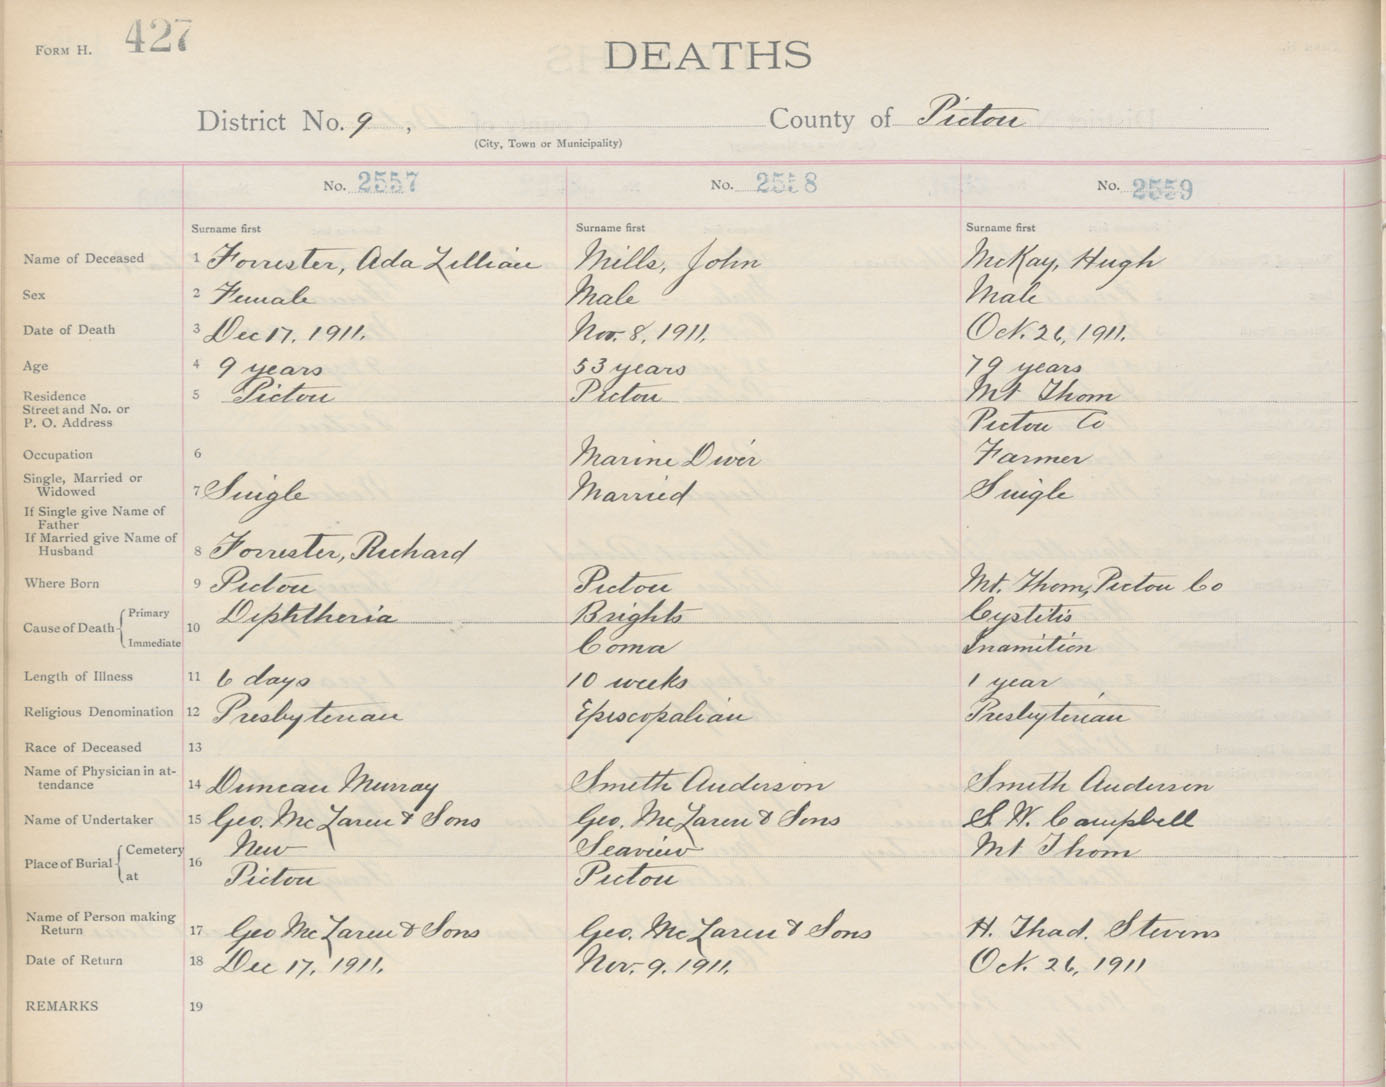 FORM H. 427
DEATHS
District No. 9, County of Pictou
(City, Town or Municipality)
No. 2557 No. 2558 No. 2559
Surname first Surname first Surname first
Name of Deceased 1 Forrester, Ada Lillian Mills, John McKay, Hugh
Sex 2 Female Male Male
Date of Death 3 Dec 17, 1911. Nov. 8, 1911. Oct. 26, 1911.
Age 4 9 years 53 years 79 years
Residence 5 Pictou Pictou Mt Thom
Street and No. or
P. O. Address Pictou Co
Occupation 6 Marine Diver Farmer
Single, Married or
Widowed 7 Single Married Single
If Single give Name of
Father
If Married give Name of
Husband 8 Forrester, Richard
Where Born 9 Pictou Pictou Mt. Thom, Pictou Co
Cause of Death Primary 10 Diphtheria Brights Cystitis
Immediate Coma Inamition
Length of Illness 11 6 days 10 weeks 1 year
Religious Denomination 12 Presbyterian Episcopalian Presbyterian
Race of Deceased 13
Name of Physician in at-
tendance 14 Duncan Murray Smith Anderson Smith Anderson
Name of Undertaker 15 Geo. McLaren & Sons Geo. McLaren & Sons S. W. Campbell
Place of Burial Cemetery 16 New Seaview Mt Thom
at Pictou Pictou
Name of Person making
Return 17 Geo McLaren & Sons Geo. McLaren & Sons H. Thad. Stevens
Date of Return 18 Dec 17, 1911. Nov. 9. 1911. Oct. 26, 1911
REMARKS 19